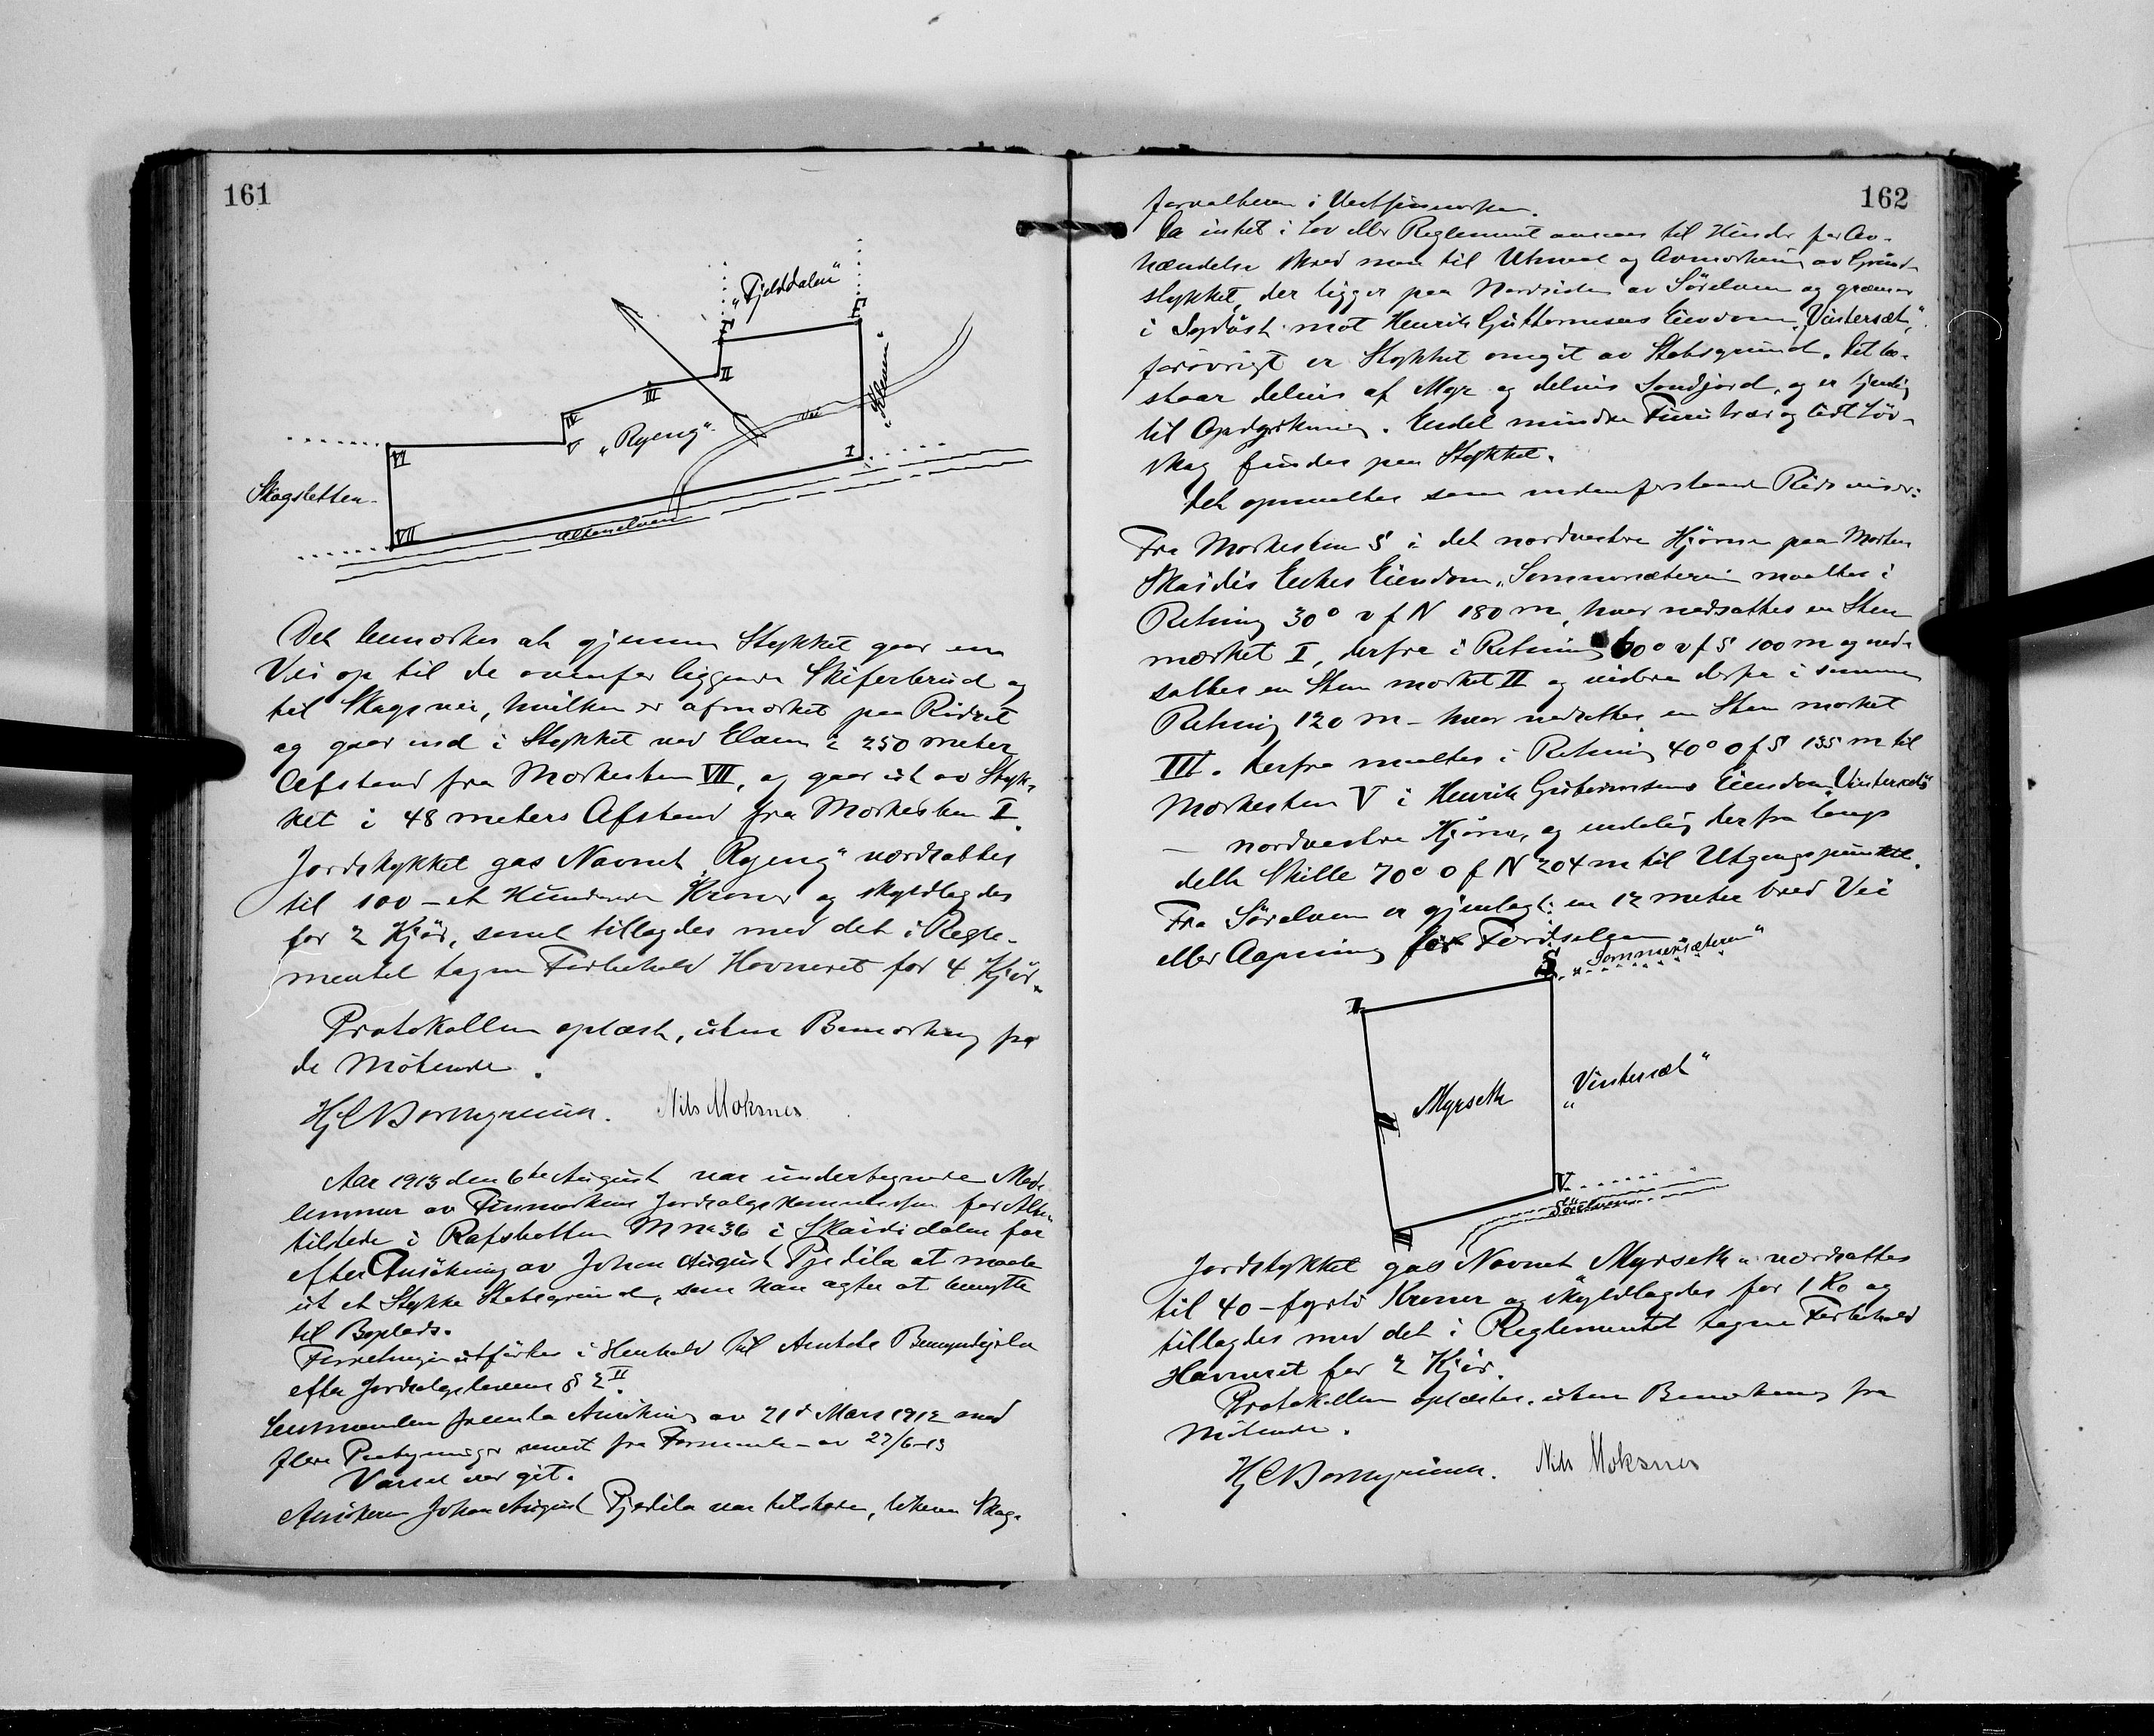 161
"Fjelddalen"
I
E
II
III
IV
V
"Ryeng"
Vei
"Elvenes"
I
VI
Skogsletten
VII
Altenelven
Det bemerkes at gjennem Stykket gaar en
Vei op til de ovenfor liggende Skiferbrud og
til Skogs vei, hvilken er afmerket paa Ridset
og gaar ind i Stykket ved Elven i 250 meter
Afstand fra Merkesten VII, og gaar ut av Styk-
ket i 48 meters Afstand fra Merkesten I.
Jordstykket gas Navnet "Ryeng" værdsattes
til 100 - et Hundrede Kroner og skyldlagdes
for 2 Kjør, samt tillagdes med det i Regle-
mentet tagne Forbehold Havneret for 4 Kjør.
Protokollen oplæst, uten Bemerkning fra
de Møtende.
Hj C Borchgrevink. Nils Moksnes
Aar 1913 den 6te August var undertegnede Med-
lemmer av Finmarkens Jordsalgskommission for Alten
tilstede i Rafsbotten M no 36 i Skaididalen for
efter Ansøkning av Johan August Pjedila at maale
ut et Stykke Statsgrund, som han agter at benytte
til Boplads.
Forretningen utføres i Henhold til Amtets Bemyndigelse
efter Jordsalgslovens § 2 II.
Lensmanden fremla Ansøkning av 21de Mars 1912 med
flere Paategninger senest fra - av 27/6-13
Varsel var git.
Ansøkeren Johan August Pjedila var tilstede, likesaa Skog-
162
forvalteren i Vestfinmarken.
Da intet i Lov eller Reglement ansees til Hinder for Av-
hændelse skred man til Utmaal og Avmerkning av Grund-
stykket, der ligger paa Nordsiden av Sørelven og grænser
i Sydøst mot Henrik Guttormsens Eiendom "Vintersæt",
forøvrigt er Stykket omgit av Statsgrund. Det be-
staar delvis af Myr og delvis Sandjord, og er tjenlig
til Opdyrkning. Endel mindre Furutrær og lidt Løv-
skog findes paa Stykket.
Det opmaaltes som nedenforstaaende Rids viser:
Fra Merkesten S i det nordvestre Hjørne paa Morten
Skaidis Enkes Eiendom "Sommersæteren" maaltes i
Retning 30° v f N 180 m, hvor nedsattes en Sten
merket I, derfra i Retning 60° v f S 100 m og ned-
sattes en Sten merket II og videre derfra i samme
Retning 120 m - hvor nedsattes en Sten merket
III. Derfra maaltes i Retning 40° ø f S 135 m til
Merkesten V i Henrik Guttormsens Eiendom "Vintersæts"
- nordvestre Hjørne, og endelig derfra langs
dette Skille 70° ø f N 204 m til Utgangspunktet.
Fra Sørelven er gjenlagt en 12 meter bred Vei
eller Aapning for Færdselen
S
"Sommersæteren"
I
Myrseth
"Vintersæt"
II
V
Sørelven
III
Jordstykket gas Navnet Myrseth" værdsattes
til 40 - fyrti Kroner og skyldlagdes for 1 Ko og
tillagdes med det i Reglementet tagne Forbehold
Havneret for 2 Kjør.
Protokollen oplæstes, uten Bemerkning fra
Møtende.
Hj C Borchgrevink. Nils Moksnes